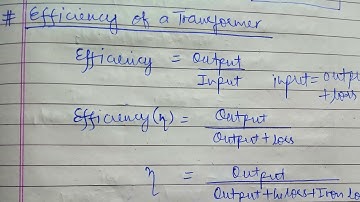 # Efficiency of a Transformer
Efficiency = Output
Input input = output
+ loss
Efficiency(η) = Output
Output + loss
η = Output
Output + Cu loss + Iron Lo